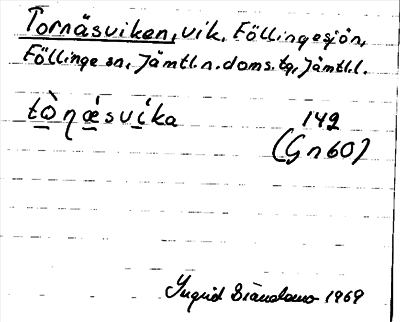 Tornäsviken, vik, Föllingesjön,
Föllinge sn, Jämtl. n. doms. tg, Jämtl. l.
tò̱ŋǽ̱svi̱̍ka 142
(Gn60)
Ingrid 1969